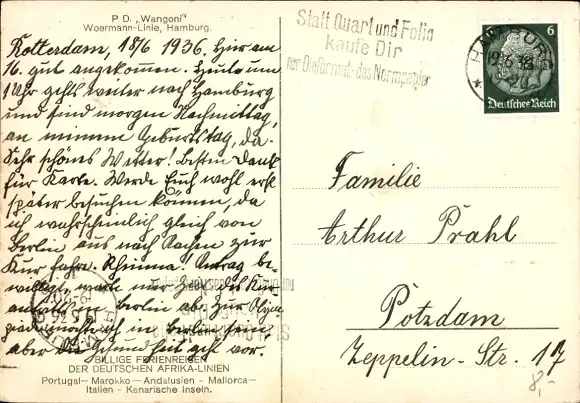 P.D. „Wangoni"
Woermann-Linie, Hamburg.
Rotterdam, 18/6 1936. Hier am
16. gut angekommen. Heute um
1 Uhr gehts weiter nach Hamburg
und sind morgen Nachmittag,
an meinem Geburtstag, da.
Sehr schönes Wetter! Besten Dank
für Karte. Werde Euch wohl erst
später besuchen können, da
ich wahrscheinlich gleich von
Berlin aus nach Aachen zur
Kur fahre. Rheuma! Antrag be-
willigt, warte nur Zeit des Kur
in Berlin ab. Zur Olym
piade möchte ich in Berlin sein,
aber die Gesundheit geht vor.
BILLIGE FERIENREISEN
DER DEUTSCHEN AFRIKA-LINIEN
Portugal— Marokko—Andalusien - Mallorca—
Italien - Kanarische Inseln.
Statt Quart und Folio
kaufe Dir
nur Dinformat-das Normpapier
HAMBURG
6
Deutsches Reich
Familie
Arthur Prahl
Potzdam
Zeppelin-Str. 17
8,-